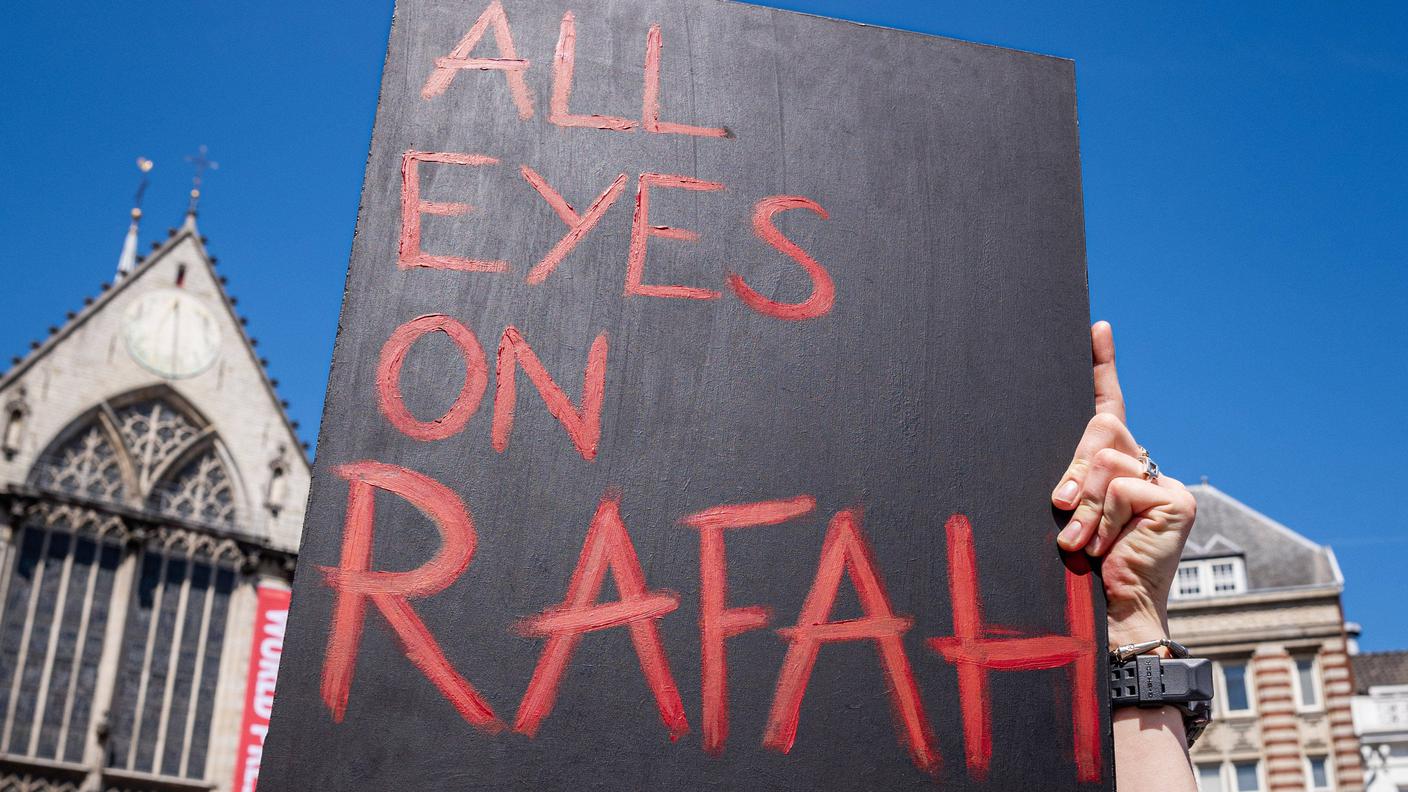 ALL
EYES
ON
RAFAH
WORLD